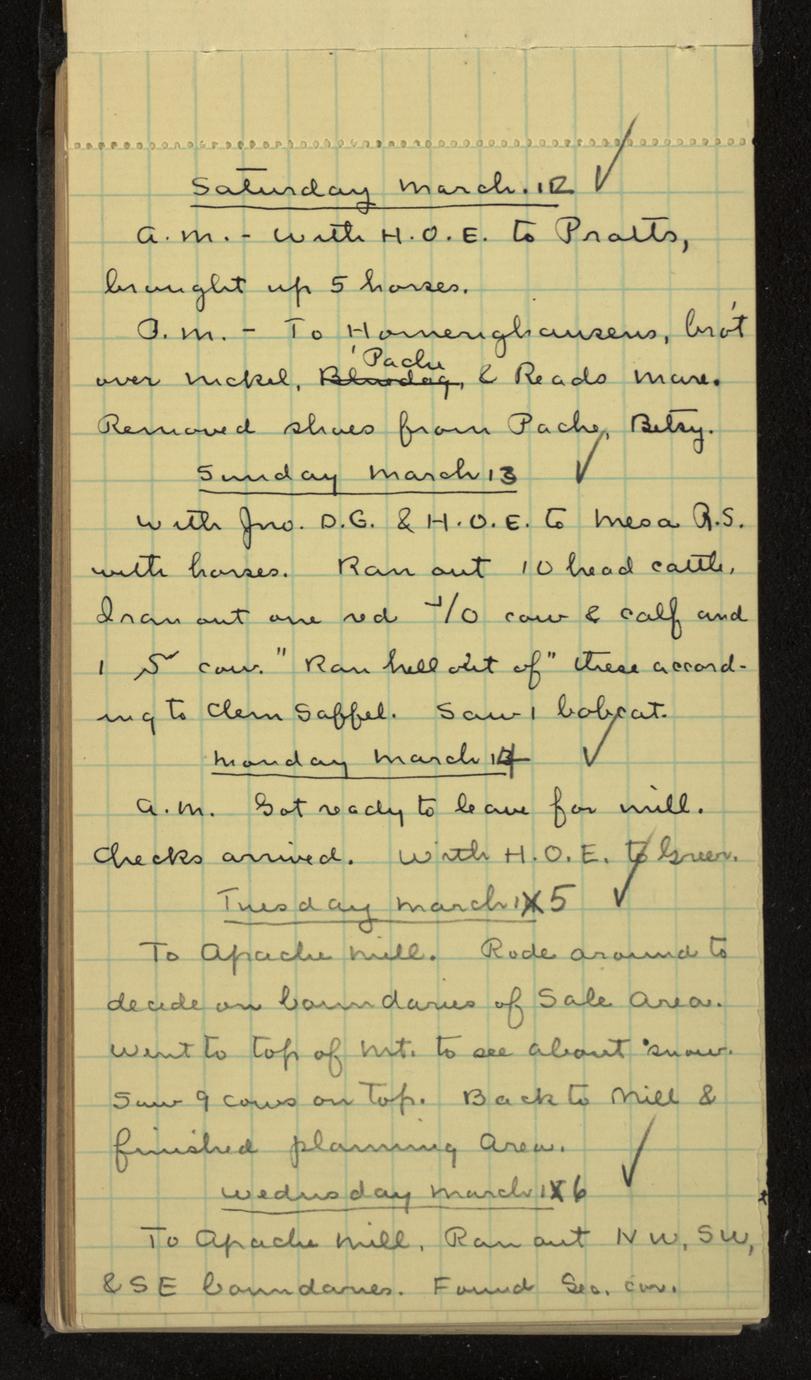 Saturday March. 12
A.M. - With H.O.E. to Pratts,
brought up 5 horses.
P.M. - To Homerighausens, bro't
Pache
over Nickel, Bluedog, & Reads mare.
Removed shoes from Pache, Betsy.
Sunday March 13
With Jno. D.G. & H.O.E. to Mesa R.S.
with horses. Ran out 10 head cattle,
I ran out one red /O cow & calf and
1 cow. "Ran hell out of" these accord-
ing to Clem Saffel. Saw 1 bobcat.
Monday March 14
A.M. Got ready to leave for mill.
Checks arrived. With H.O.E. to Greer.
Tuesday March 15
To Apache Mill. Rode around to
decide on boundaries of Sale Area.
Went to top of Mt. to see about snow.
Saw 9 cows on top. Back to Mill &
finished planning Area.
Wednesday March 16
To Apache Mill. Ran out NW, SW,
& SE boundaries. Found Sec. cor.